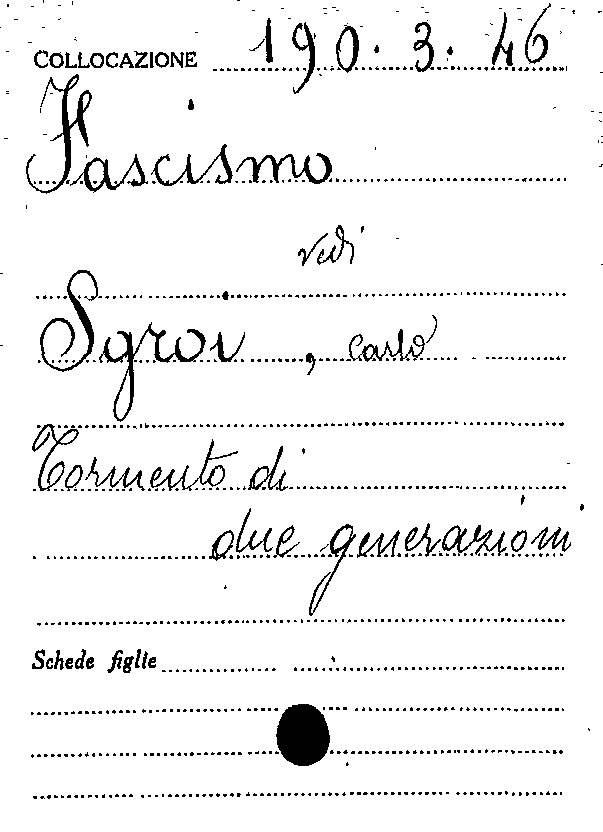 COLLOCAZIONE 190. 3. 46
Fascismo
vedi
Sgroi, Carlo
Tormento di
due generazioni
Schede figlie